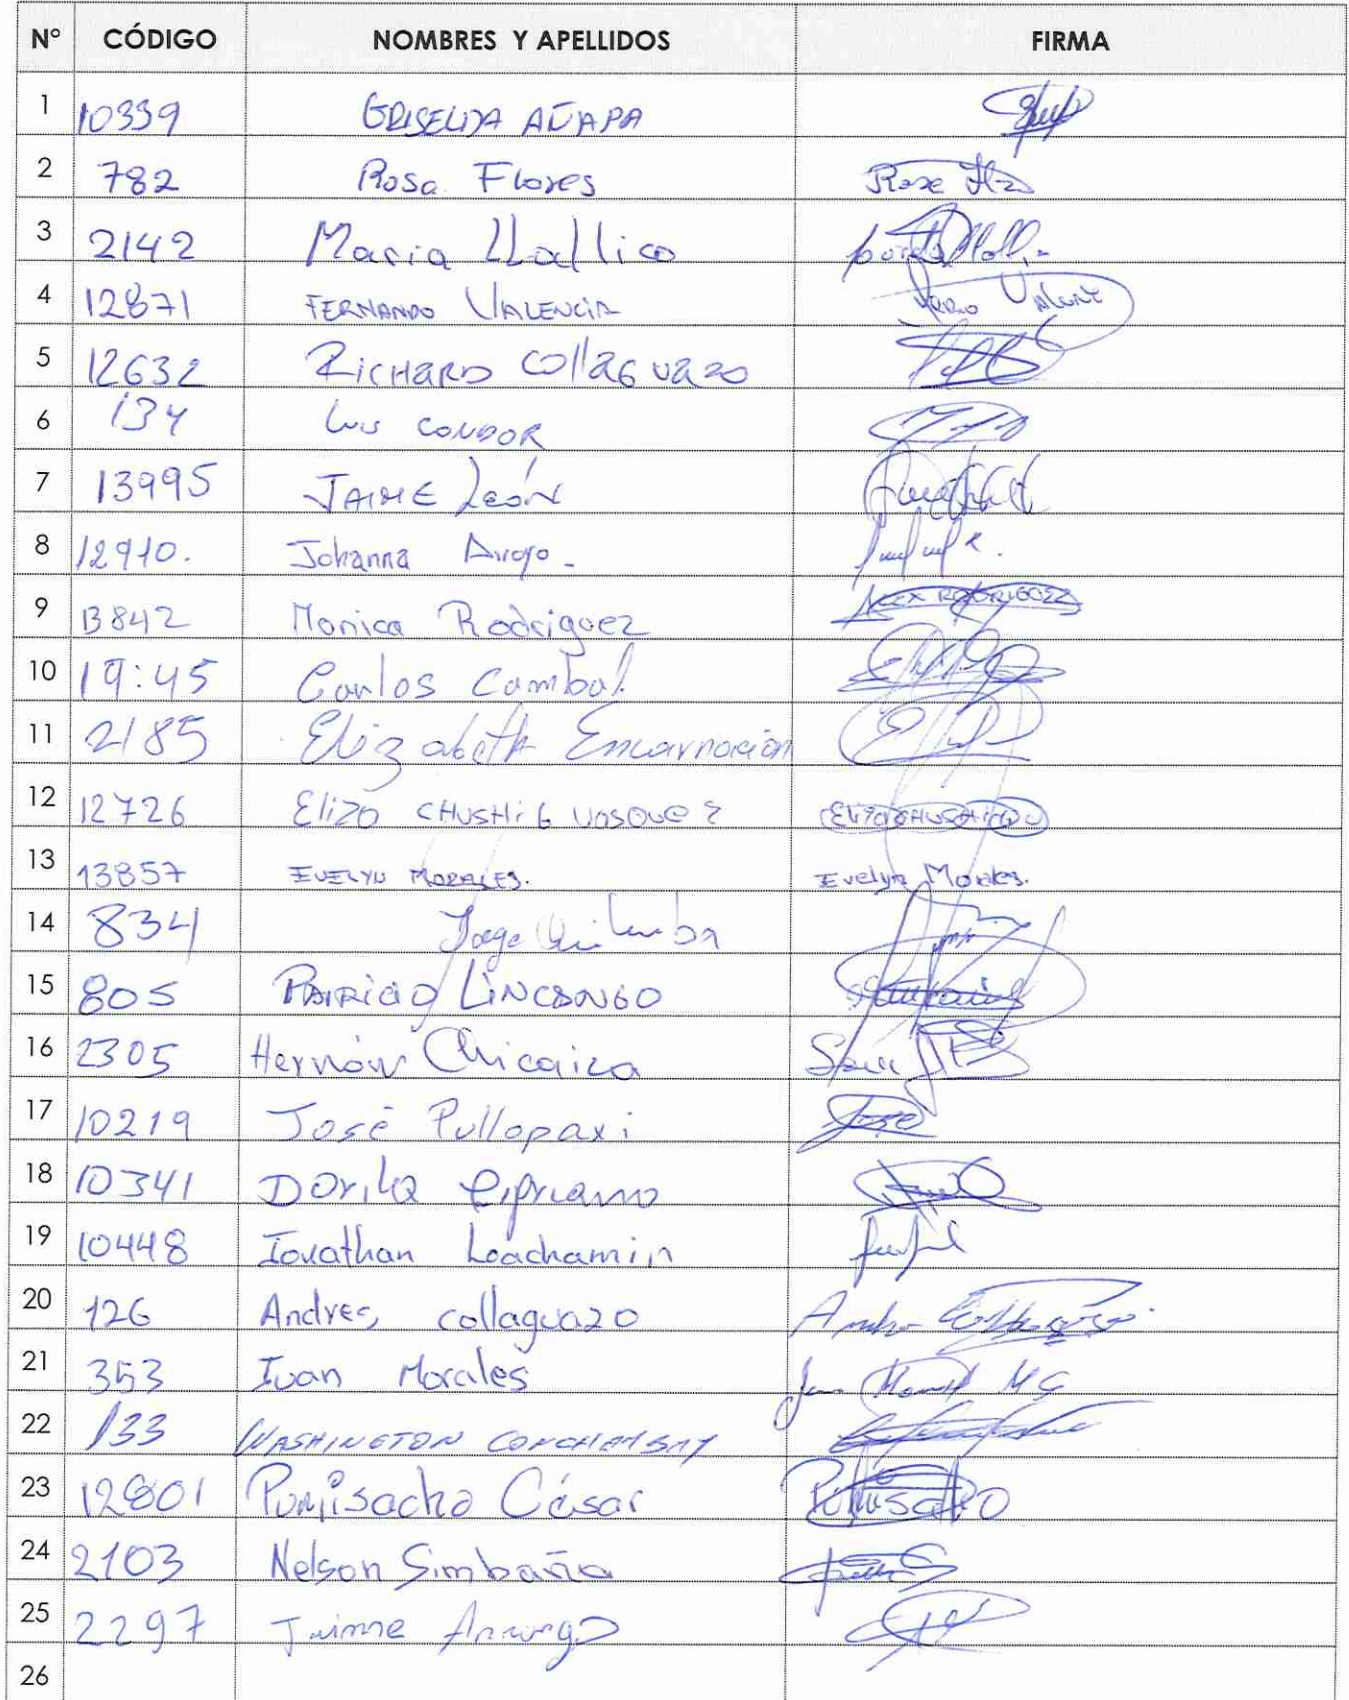 N° CÓDIGO NOMBRES Y APELLIDOS FIRMA
1 10339 GRISELDA AÑAPA
2 782 Rosa Flores
3 2142 Maria LLallico
4 12871 FERNANDO VALENCIA
5 12632 RicHaRD Collaguazo
6 134 Luis CONDOR
7 13995 JAIME León
8 12910. Johanna Arroyo-
9 13842 Monica Rodriguez ALEX RODRIGUEZ
10 19:45 Carlos Cambal.
11 2185 Elizabeth Encarnación
12 12726 Eliza CHUSHiG VasQuez
13 13857 EVELYN MORALES. Evelyn Morales.
14 834 Jorge
15 805 PATRICIO LINCANGO
16 2305 Hernán Chicaiza
17 10219 José Pullopaxi José
18 10341 Dorila Cipriano
19 10448 Jonathan Loachamin
20 126 Andres collaguazo
21 353 Ivan Morales
22 133 WASHINGTON
23 12801 Pumisacho César Pumisacho
24 2103 Nelson Simbaña
25 2297 Jaime
26